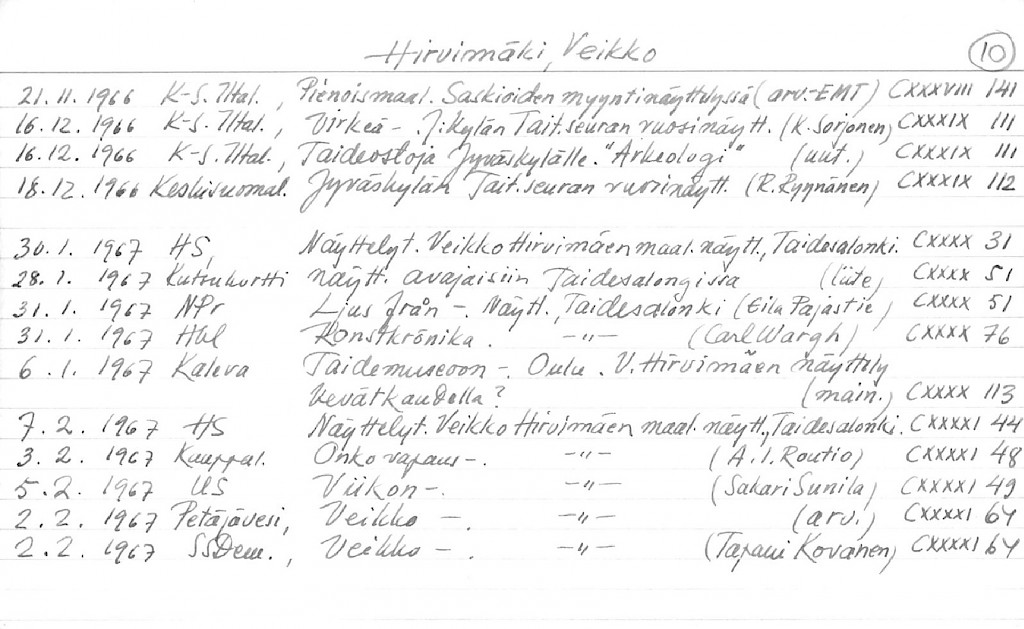 Hirvimäki, Veikko 10
21.11.1966 K-S. Iltal., Pienoismaal. Saskioiden myyntinäyttelyssä (arv.-EMT) CXXXVIII 141
16.12.1966 K-S. Iltal., Virkeä -. J:kylän Tait.seuran vuosinäytt. (K. Sorjonen) CXXXIX 111
16.12.1966 K-S. Iltal., Taideostoja Jyväskylälle. "Arkeologi" (uut.) CXXXIX 111
18.12.1966 Keskisuomal. Jyväskylän Tait.seuran vuosinäytt. (R. Rynnänen) CXXXIX 112
30.1. 1967 HS, Näyttelyt. Veikko Hirvimäen maal. näytt., Taidesalonki. CXXXX 31
28.1. 1967 Kutsukortti näytt. avajaisiin Taidesalongissa (liite) CXXXX 51
31.1. 1967 NPr Ljus från -. Näytt., Taidesalonki (Eila Pajastie) CXXXX 51
31.1. 1967 Hbl Konstkrönika. -"- (Carl Wargh) CXXXX 76
6.1. 1967 Kaleva Taidemuseoon -. Oulu. V. Hirvimäen näyttely
kevätkaudella? (main.) CXXXX 113
7.2. 1967 HS Näyttelyt. Veikko Hirvimäen maal. näytt., Taidesalonki. CXXXXI 44
3.2. 1967 Kauppal. Onko vapaus -. -"- (A.I. Routio) CXXXXI 48
5.2. 1967 US Viikon -. -"- (Sakari Sunila) CXXXXI 49
2.2. 1967 Petäjävesi, Veikko -. -"- (arv.) CXXXXI 64
2.2. 1967 SSDem., Veikko -. -"- (Tapani Kovanen) CXXXXI 64